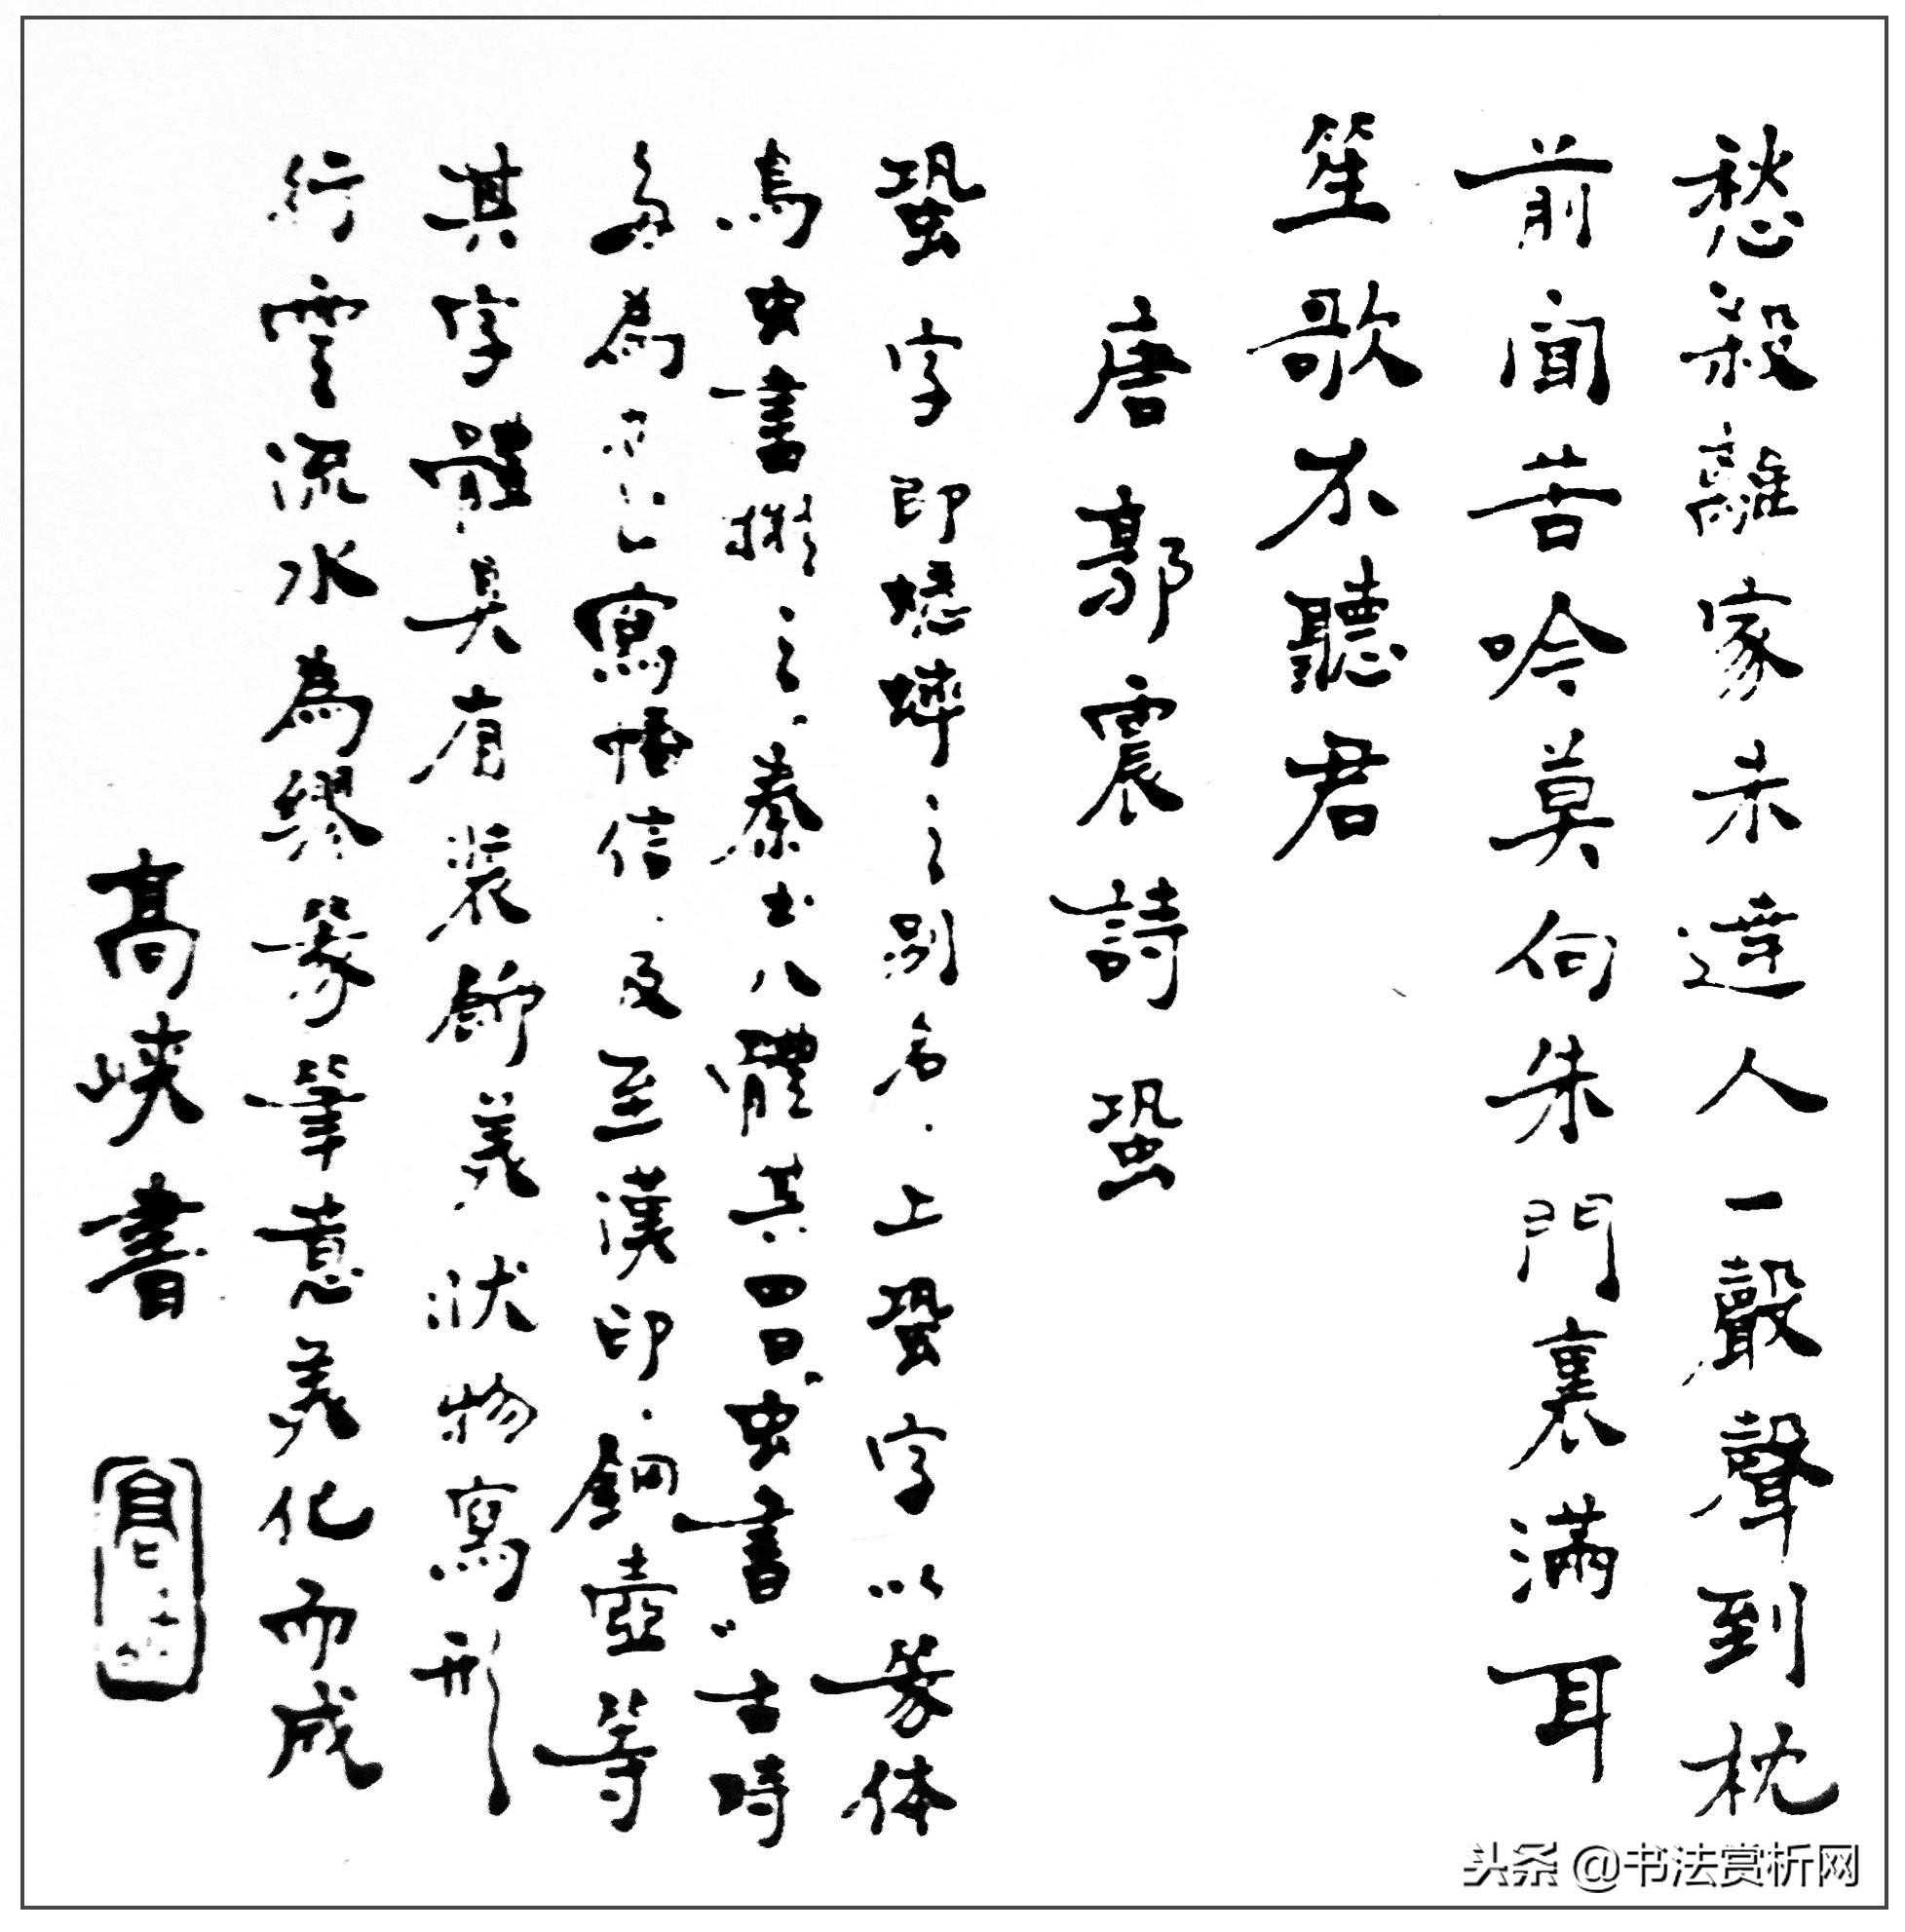 愁殺離家未達人一聲聲到枕
前聞苦吟莫向朱門裏滿耳
笙歌不聽君
唐郭震詩蛩
蛩字即蟋蟀之別名上蛩字以篆体
鳥虫書擬之秦書八體其四曰虫書古時
多為寫幡信及至漢印銅壺等
其字體具有裝飾美狀物寫形
行雲流水為繆篆筆意美化而成
高峡書
头条 @书法赏析网